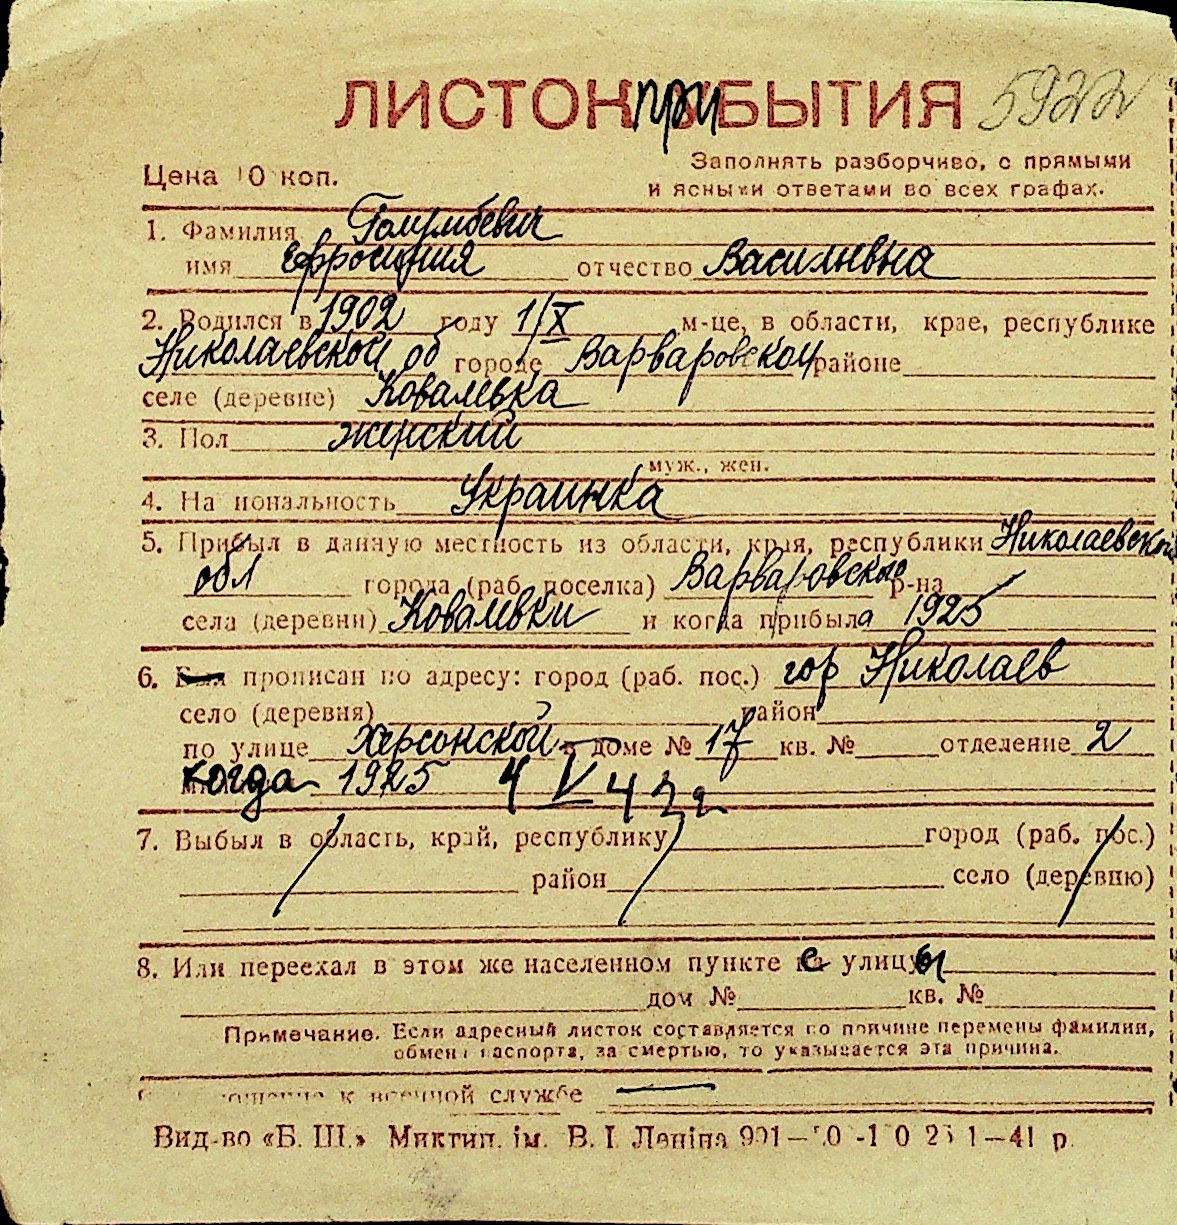 ЛИСТОК прИБЫТИЯ 5922
Цена 10 коп. Заполнять разборчиво, с прямыми
и ясными ответами во всех графах.
1. Фамилия Голумбевич
имя Ефросиния отчество Васильевна
2. Родился в 1902 году 1/X м-це, в области, крае, республике
Николаевской об городе Варваровской районе
селе (деревне) Ковалевка
3. Пол женский
муж., жен.
4. Национальность Украинка
5. Прибыл в данную местность из области, края, республики Николаевской
обл города (раб. поселка) Варваровского р-на
села (деревни) Ковалевки и когда прибыла 1925
6. Был прописан по адресу: город (раб. пос.) гор Николаев
село (деревня) район
по улице Херсонской в доме № 17 кв. № отделение 2
когда 1925 4 V 42 г
7. Выбыл в область, край, республику город (раб. пос.)
район село (деревню)
8. Или переехал в этом же населенном пункте с улицы
дом № кв. №
Примечание. Если адресный листок составляется по причине перемены фамилии,
обмена паспорта, за смертью, то указывается эта причина.
к военной службе
Вид-во «Б. Ш.» Миктип. ім. В. І. Леніна 41 р.